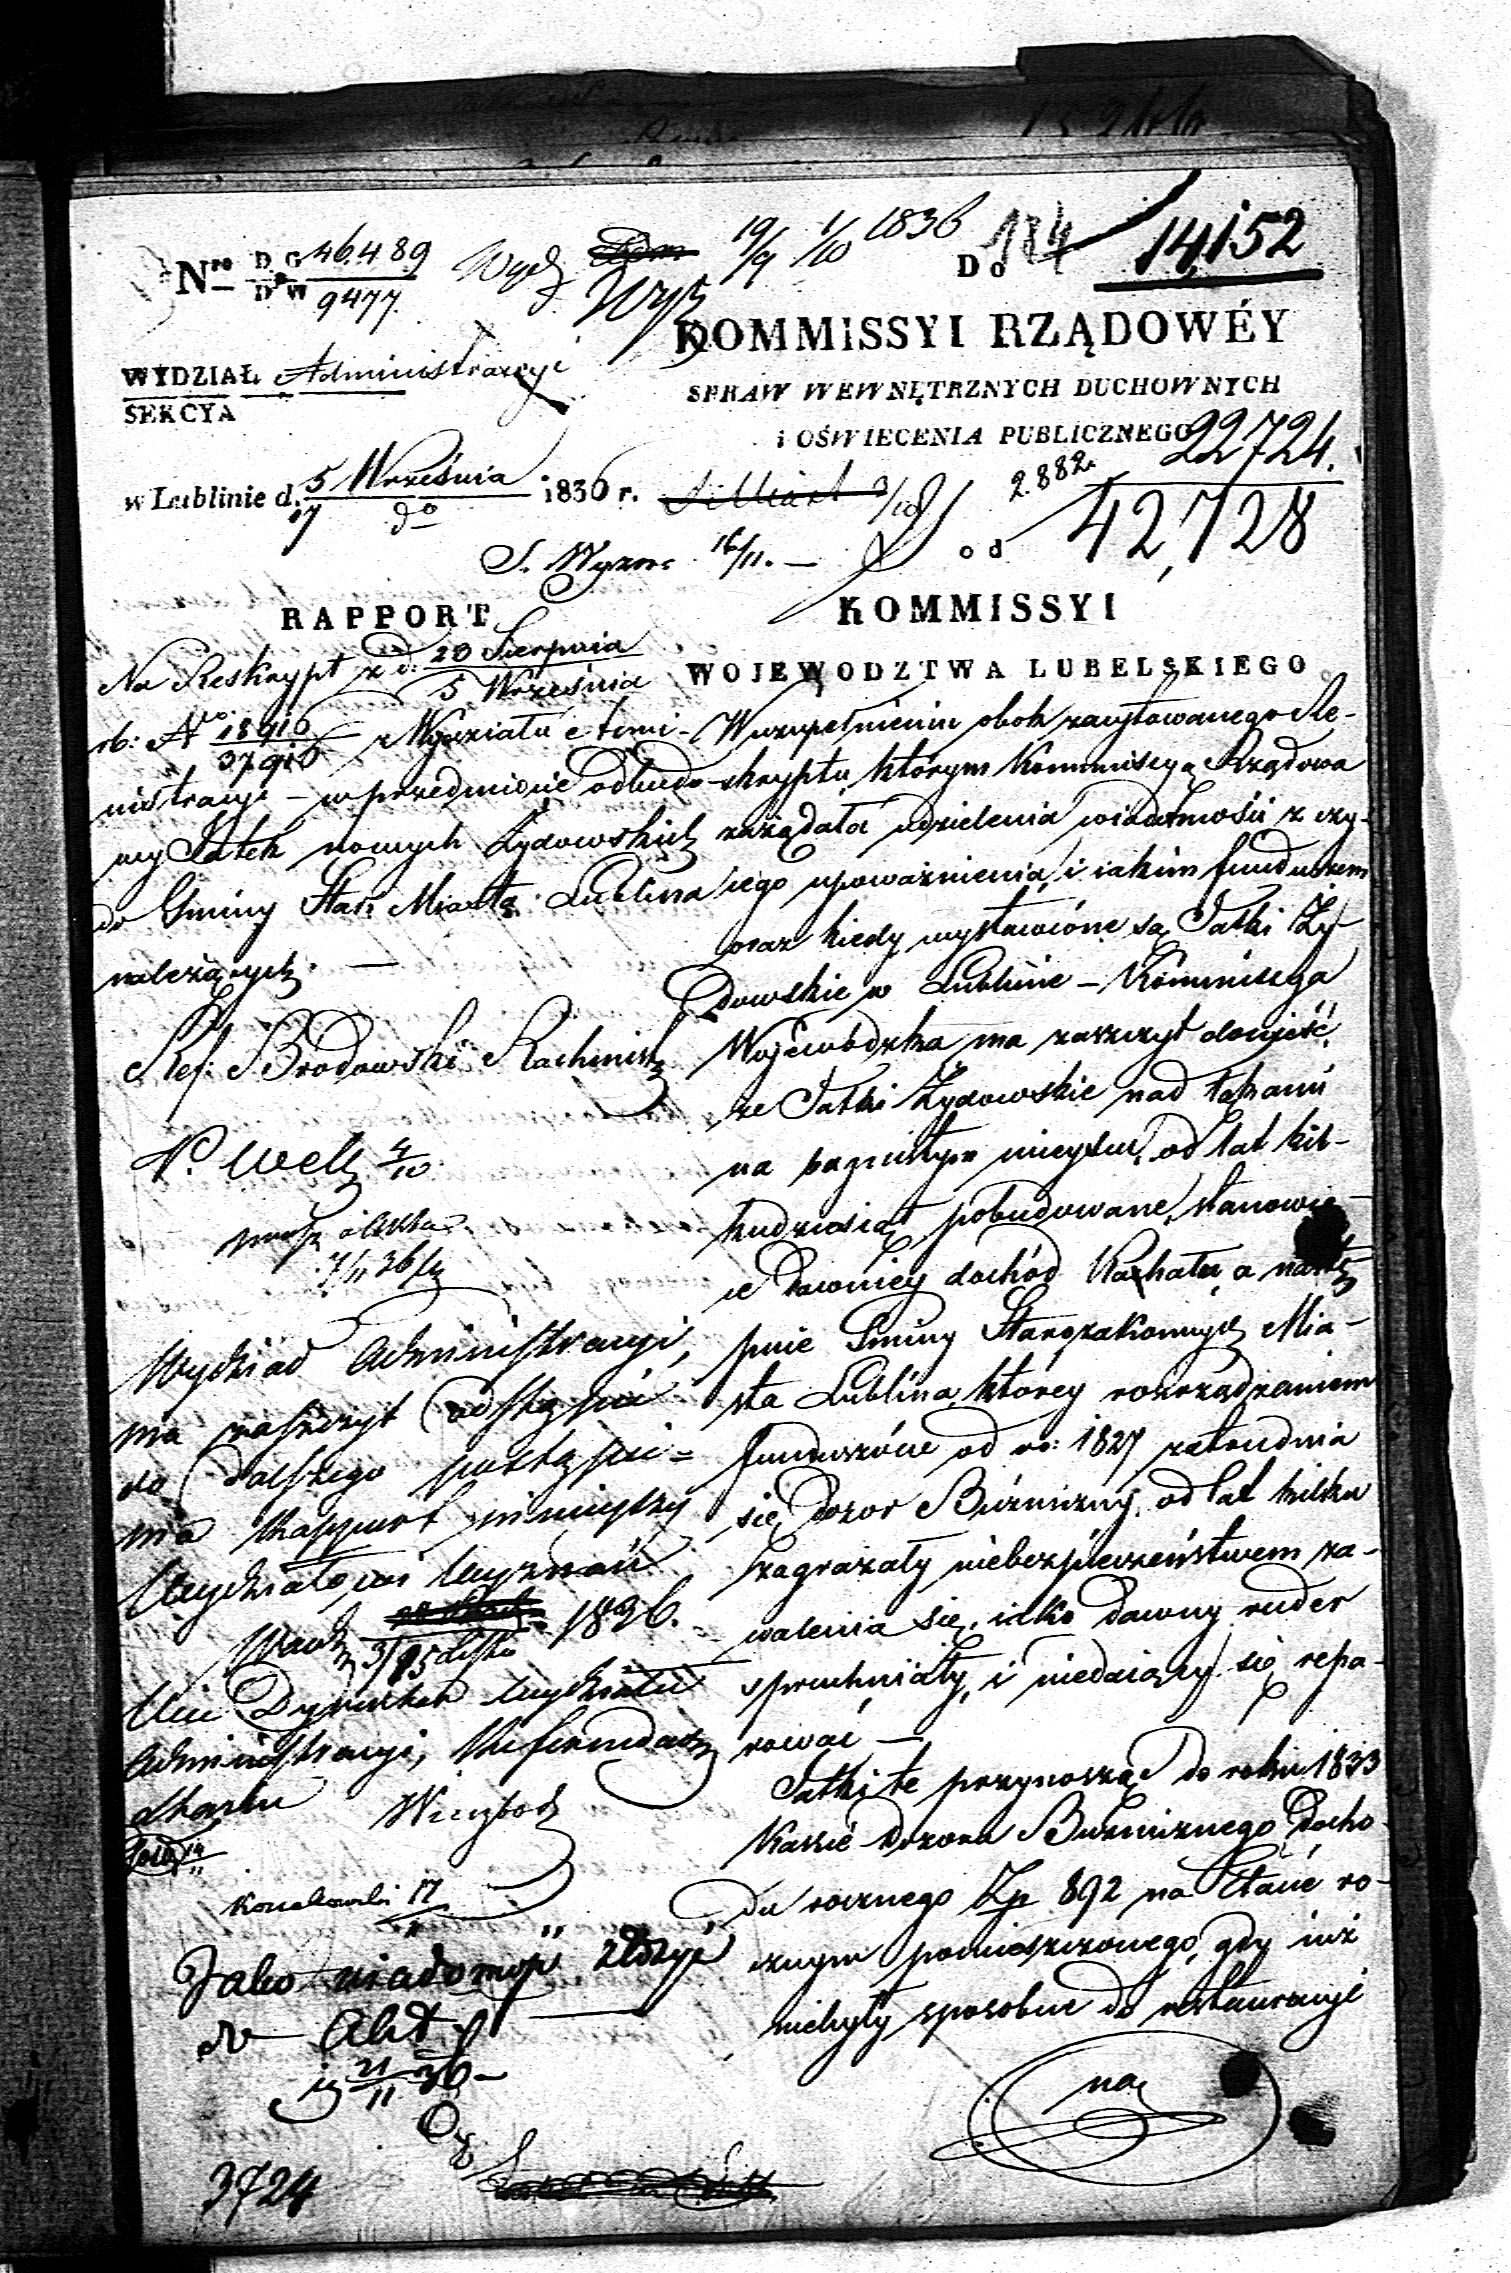 N<sup>ro</sup> D G 46.489
D W 9477.
Wydz
19/9 1/10 1836
Do
184
14,152
KOMMISSYI RZĄDOWÉY
SPRAW WEWNĘTRZNYCH DUCHOWNYCH
i OŚWIECENIA PUBLICZNEGO
WYDZIAŁ Administracyi
SEKCYA
w Lublinie d. 5 Września 1836 r.
17 do
22724.
2882.
42,728
16/11. —
od
KOMMISSYI
WOJEWODZTWA LUBELSKIEGO
RAPPORT
Na Reskrypt z d: 20 Sierpnia
5 Września
rb: N<sup>ro</sup> 18916
37916
z Wydziału Admi-
nistracyi — w przedmiocie odbudo-
wy Jatek nowych Żydowskich
do Gminy Star: Miasta Lublina
należących. —
Ref: Brodowski Rachmistrz
4/10
Wydział Administracyi,
ma zaszczyt odstąpić
do dalszego postąpie-
nia Rapport niniejszy
Wydziałowi Wyznań
3/15 1836.
Dyrektor Wydziału
Administracyi, Referendarz
Stanu
17
Jako wiadomość złożyć
do Akt
21/11 36 —
3724
W uzupełnieniu obok zacytowanego Re-
skryptu, którym Kommissya Rządowa
zażądała udzielenia wiadomości z czy-
iego upoważnienia i iakim funduszem
oraz kiedy wystawione są Jatki Ży-
dowskie w Lublinie — Kommissya
Wojewódzka ma zaszczyt donieść,
że Jatki Żydowskie nad łąkami
na bagnistym mieyscu, od lat kil-
kudziesiąt pobudowane, stanowi-
ły dawniey dochód Kachału, a nastę-
pnie Gminy Starozakonnych Mia-
sta Lublina, którey rozrządzaniem
funduszów od ro: 1827 zatrudnia
się Dozór Bużniczny, od lat kilku
zagrażały niebezpieczeństwem za-
walenia się, iako dawny ruder
spruchniały, i niedaiący się repa-
rować —
Jatki te przynosząc do roku 1833
Kassie Dozoru Bużnicznego docho-
du rocznego Zł 892 na Etacie ro-
cznym pomieszczonego, gdy iuż
niebyły sposobne do restauracyi
na